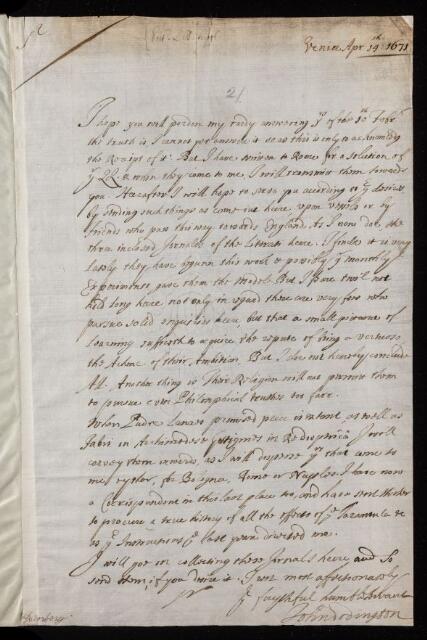 Venice Apr 19th 1671
21
I hope you will pardon my tardy answering yrs of the 10th Febr
the truth is I cannot yet answer it so as this is only to acknowledg
the Receipt of it. But I have written to Rome for a solution of
yr when they come to me, I will transmitt them towards
you. Hereafter I will hope to serve you according to yr desires
by sending such things as come out heere upon vessels or by
friends who pass this way towards England. As I now doe the
three inclosed Jornales of the Litterati heere. I finde it is very
lately they have begunn this worke & possibly yr monethly
Experiments gave them the Modell. But I feare twill not
hold long heere not only in regard there are very few who
pursue solid heere, but that a small of
Learning sufficeth to acquire the repute of being a vertuoso
the Acme of their Ambition. But I doe not heereby conclude
All. Another thing is Their Religion will not permitt them
to pursue even Philosophical truthes too farr.
When Padre Lana's promised peece is extant as well as
Fabri in Archimedese I will
convey them inwards, as I will dispose yrs that come to
me eyther for Bologna, Rome or Naples. I have now
a Correspondent in this last place too, and have sent thither
to procure a true history of all the effects of ye Tarantula &c
as yr Instructions of last yeare directed me.
I will goe on collecting these Jornals heere and So
send them, if you desire it. I rest most affectionately
Sr
yr faythful humb Servant
John Dodington